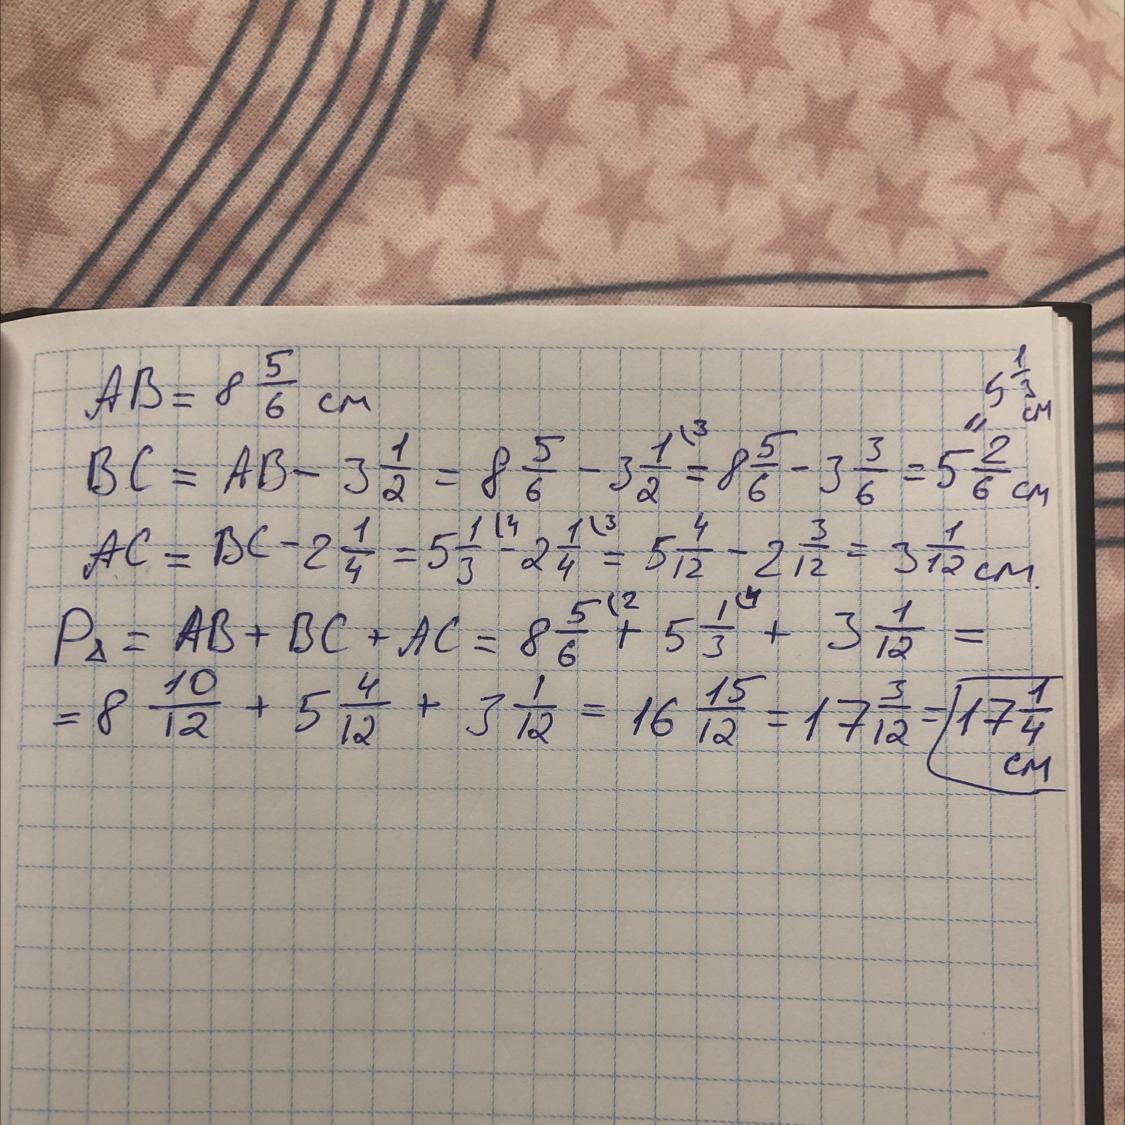 AB = 8 5/6 см
BC = AB - 3 1/2 = 8 5/6 - 3 1/2 (3 = 8 5/6 - 3 3/6 = 5 2/6 см = 5 1/3 см
AC = BC - 2 1/4 = 5 1/3 (4 - 2 1/4 (3 = 5 4/12 - 2 3/12 = 3 1/12 см.
P△ = AB + BC + AC = 8 5/6 (2 + 5 1/3 (4 + 3 1/12 =
= 8 10/12 + 5 4/12 + 3 1/12 = 16 15/12 = 17 3/12 = 17 1/4 см